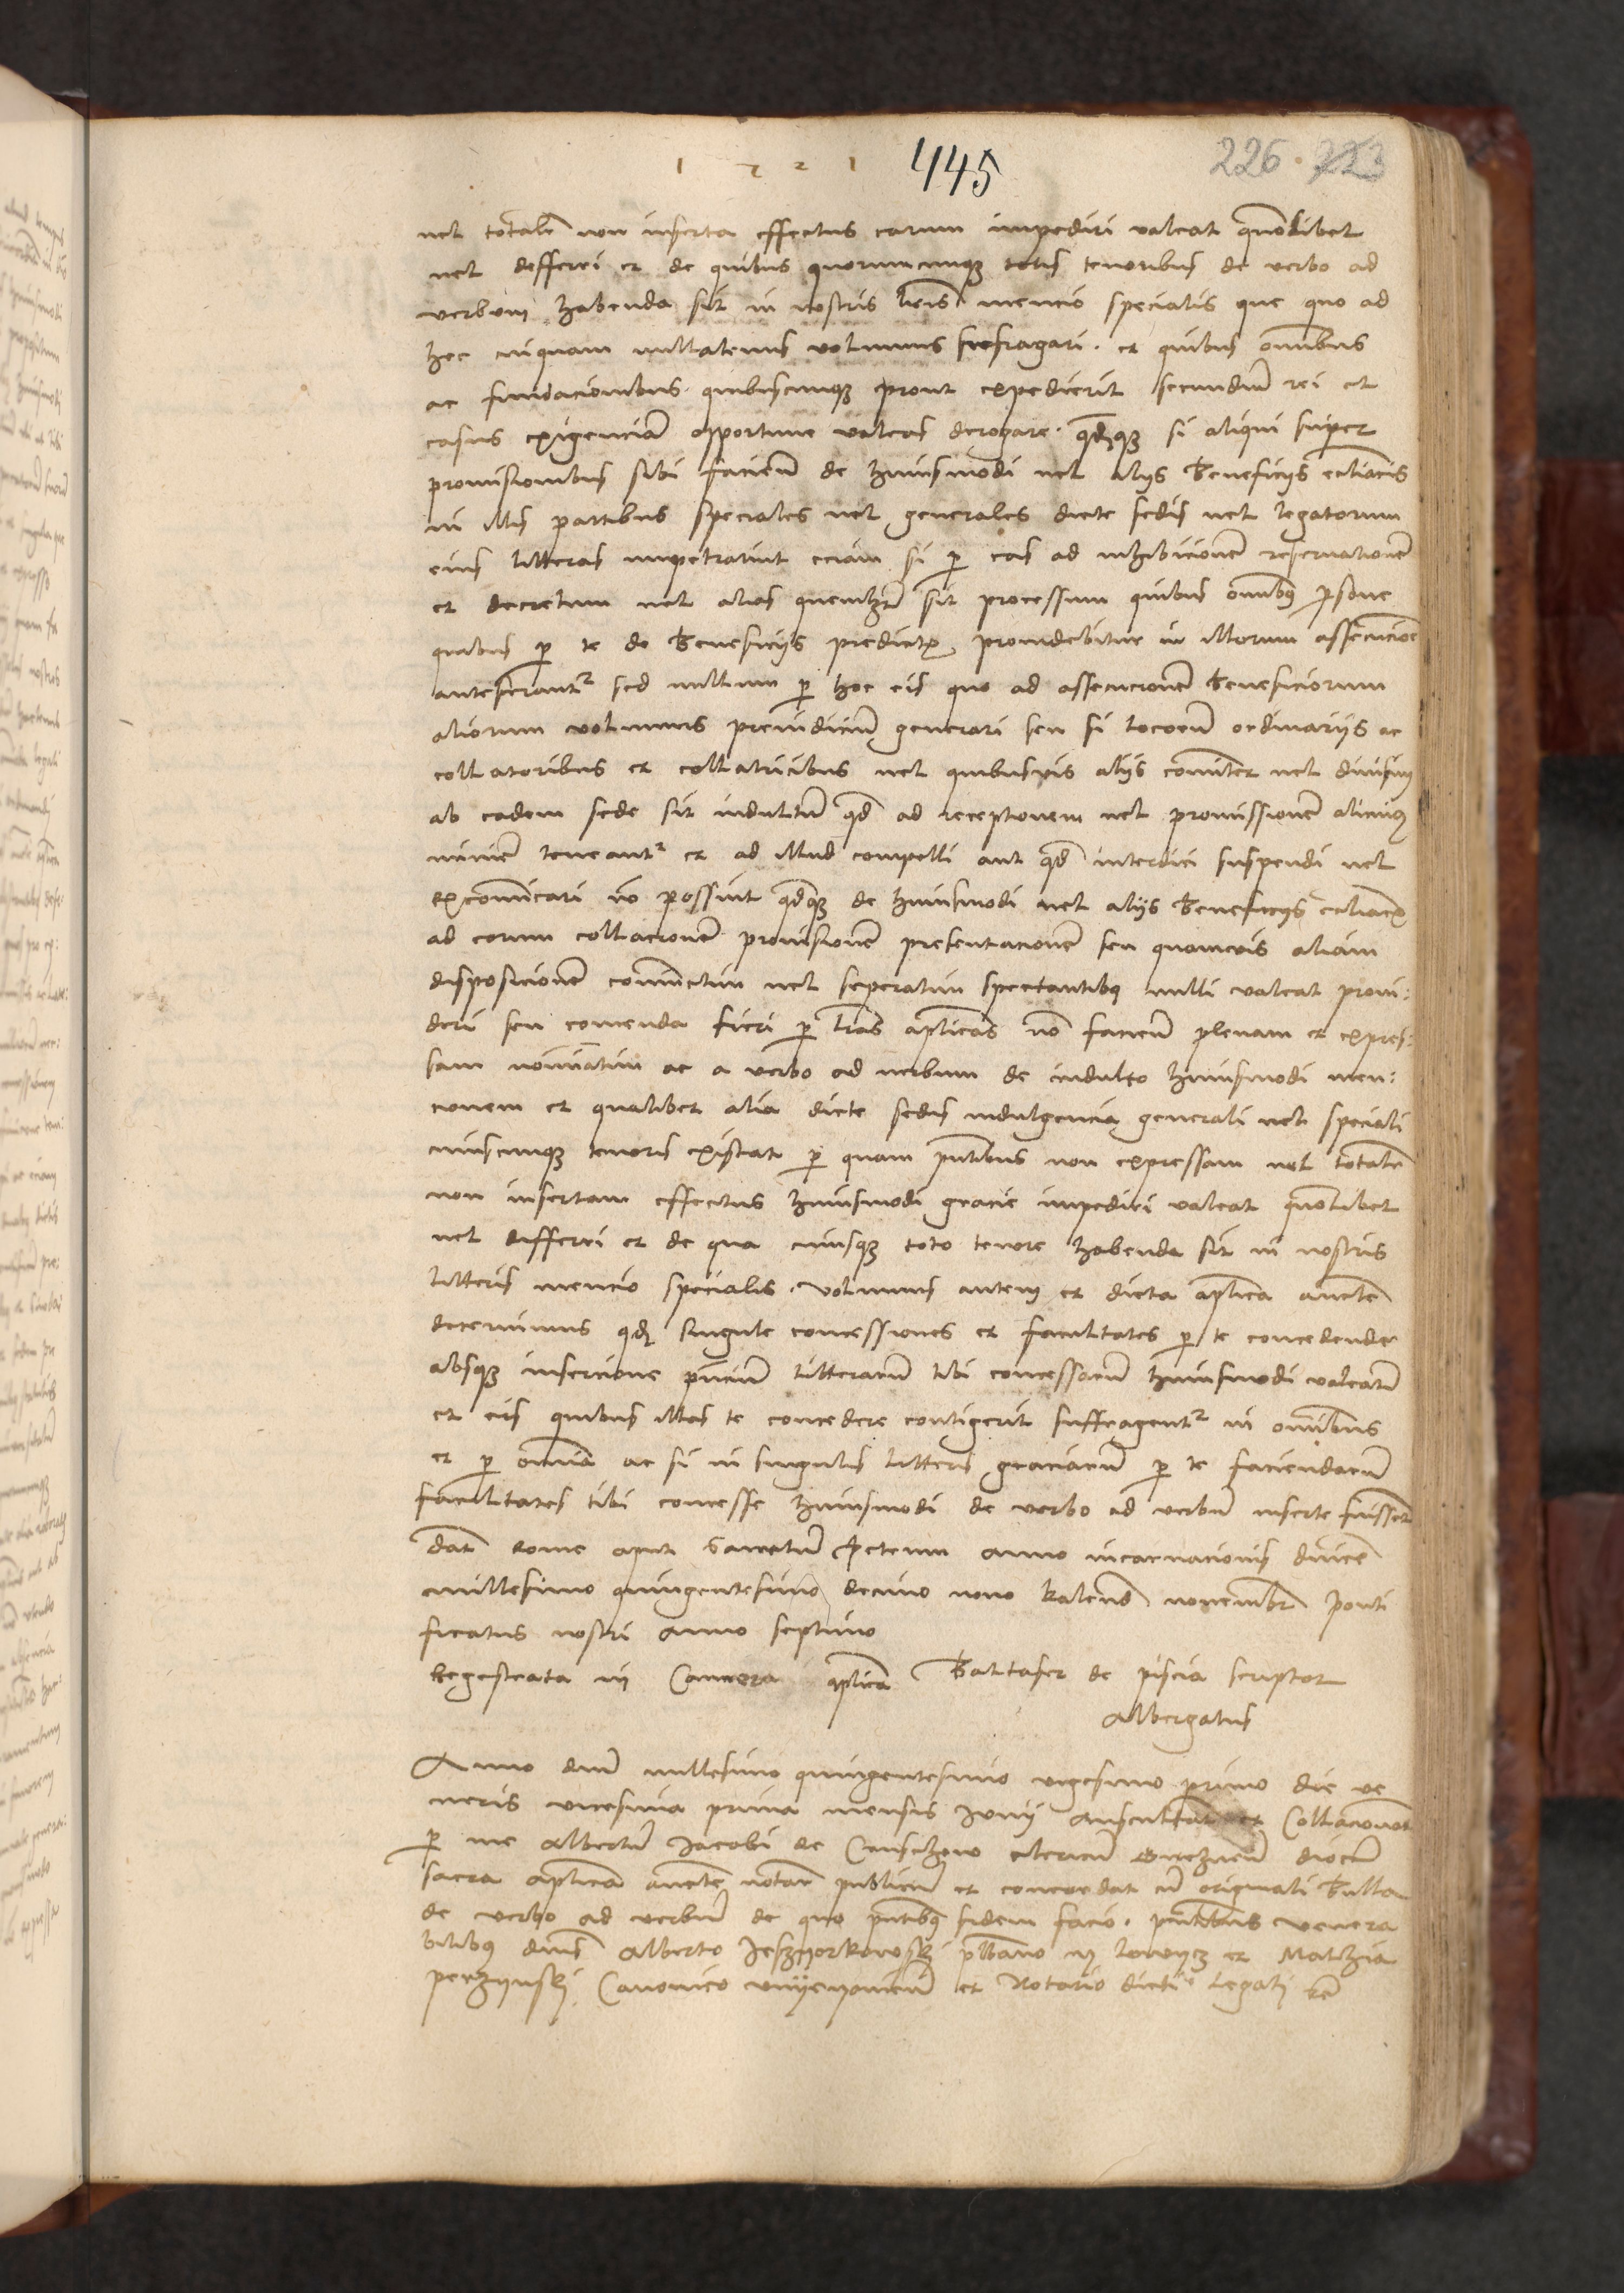 1 5 2 1 445 226 . 223
vel totalem non inserta effectus earum impediri valeat quomodolibet
vel defferri et de quibus quorumcumque totis tenoribus de verbo ad
verbum habenda sit in nostris litteris mencio specialis que quo ad
hec cuiquam nullatenus volumus suffragari . et quibus omnibus
ac fundacionibus quibuscumque prout expedierit secundum rei et
casus exigenciam opportune valeas derogare . quodque si aliqui super
provisionibus sibi faciendis de huiusmodi vel aliis beneficiis ecclesiasticis
in illis partibus speciales vel generales dicte sedis vel legatorum
eius litteras impetrarint eciam si per eas ad inhibicionem reservationem
et decretum vel alias quomodolibet sit processum quibus omnibus persone
quibus per te de beneficiis predictis providebitur in illorum assecucione
anteferantur sed nullum per hoc eis quo ad assecucionem beneficiorum
aliorum volumus preiudicium generari seu si locorum ordinariis ac
collatoribus et collatricibus vel quibusvis aliis communiter vel divisim
ab eadem sede sit indultum quod ad receptionem vel provissionem alicuius
minime teneantur et ad illud compelli aut quod interdici suspendi vel
excommunicari non possint quodque de huiusmodi vel aliis beneficiis ecclesiasticis
ad eorum collacionem provisionem presentacionem seu quamvis aliam
disposicionem coniunctim vel seperatim spectantibus nulli valeat provi:
deri seu comenda fieri per litteras apostolicas non faciendum plenam et expres:
sam nominatim ac a verbo ad verbum de indulto huiusmodi men:
cionem et qualibet alia dicte sedis indulgencia generali vel speciali
cuiuscumque tenoris existat per quam presentibus non expressam vel totalem
non insertam effectus huiusmodi gracie impediri valeat quomodolibet
vel differri et de qua cuiusque toto tenore habenda sit in nostris
litteris mencio specialis . volumus autem et dicta apostolica auctoritate
decernimus quod singule concessiones et facultates per te concedende
absque insercione presencium litterarum tibi concessarum huiusmodi valeant
et eis quibus illas te concedere contigerit suffragentur in omnibus
et per omnia ac si in singulis litteris graciarum per te faciendarum
facultates tibi concesse huiusmodi de verbo ad verbum inserte fuissent
dat Rome aput Sanctum Petrum anno incarnacionis dominice
millesimo quingentesimo decimo nono kalend novembr ponti
ficatus nostri anno septimo
Regestrata in Camera apostolica Baltaser de piscia scriptor
Albergatus
Anno domini millesimo quingentesimo vigesimo primo die ve
neris vicesima prima mensis Iunii Auscultat et Collacionat
per me Albertum Iacobi de clericum Gneznen dioc
sacra apostolica auctoritate notar publicum et concordat cum originali bulla
de verbo ad verbum de quo presentibus fidem facio . presentibus venera
bilibus dominis Alberto plebano in Lowycz et Mathia
Canonico et Notario dicti Legati